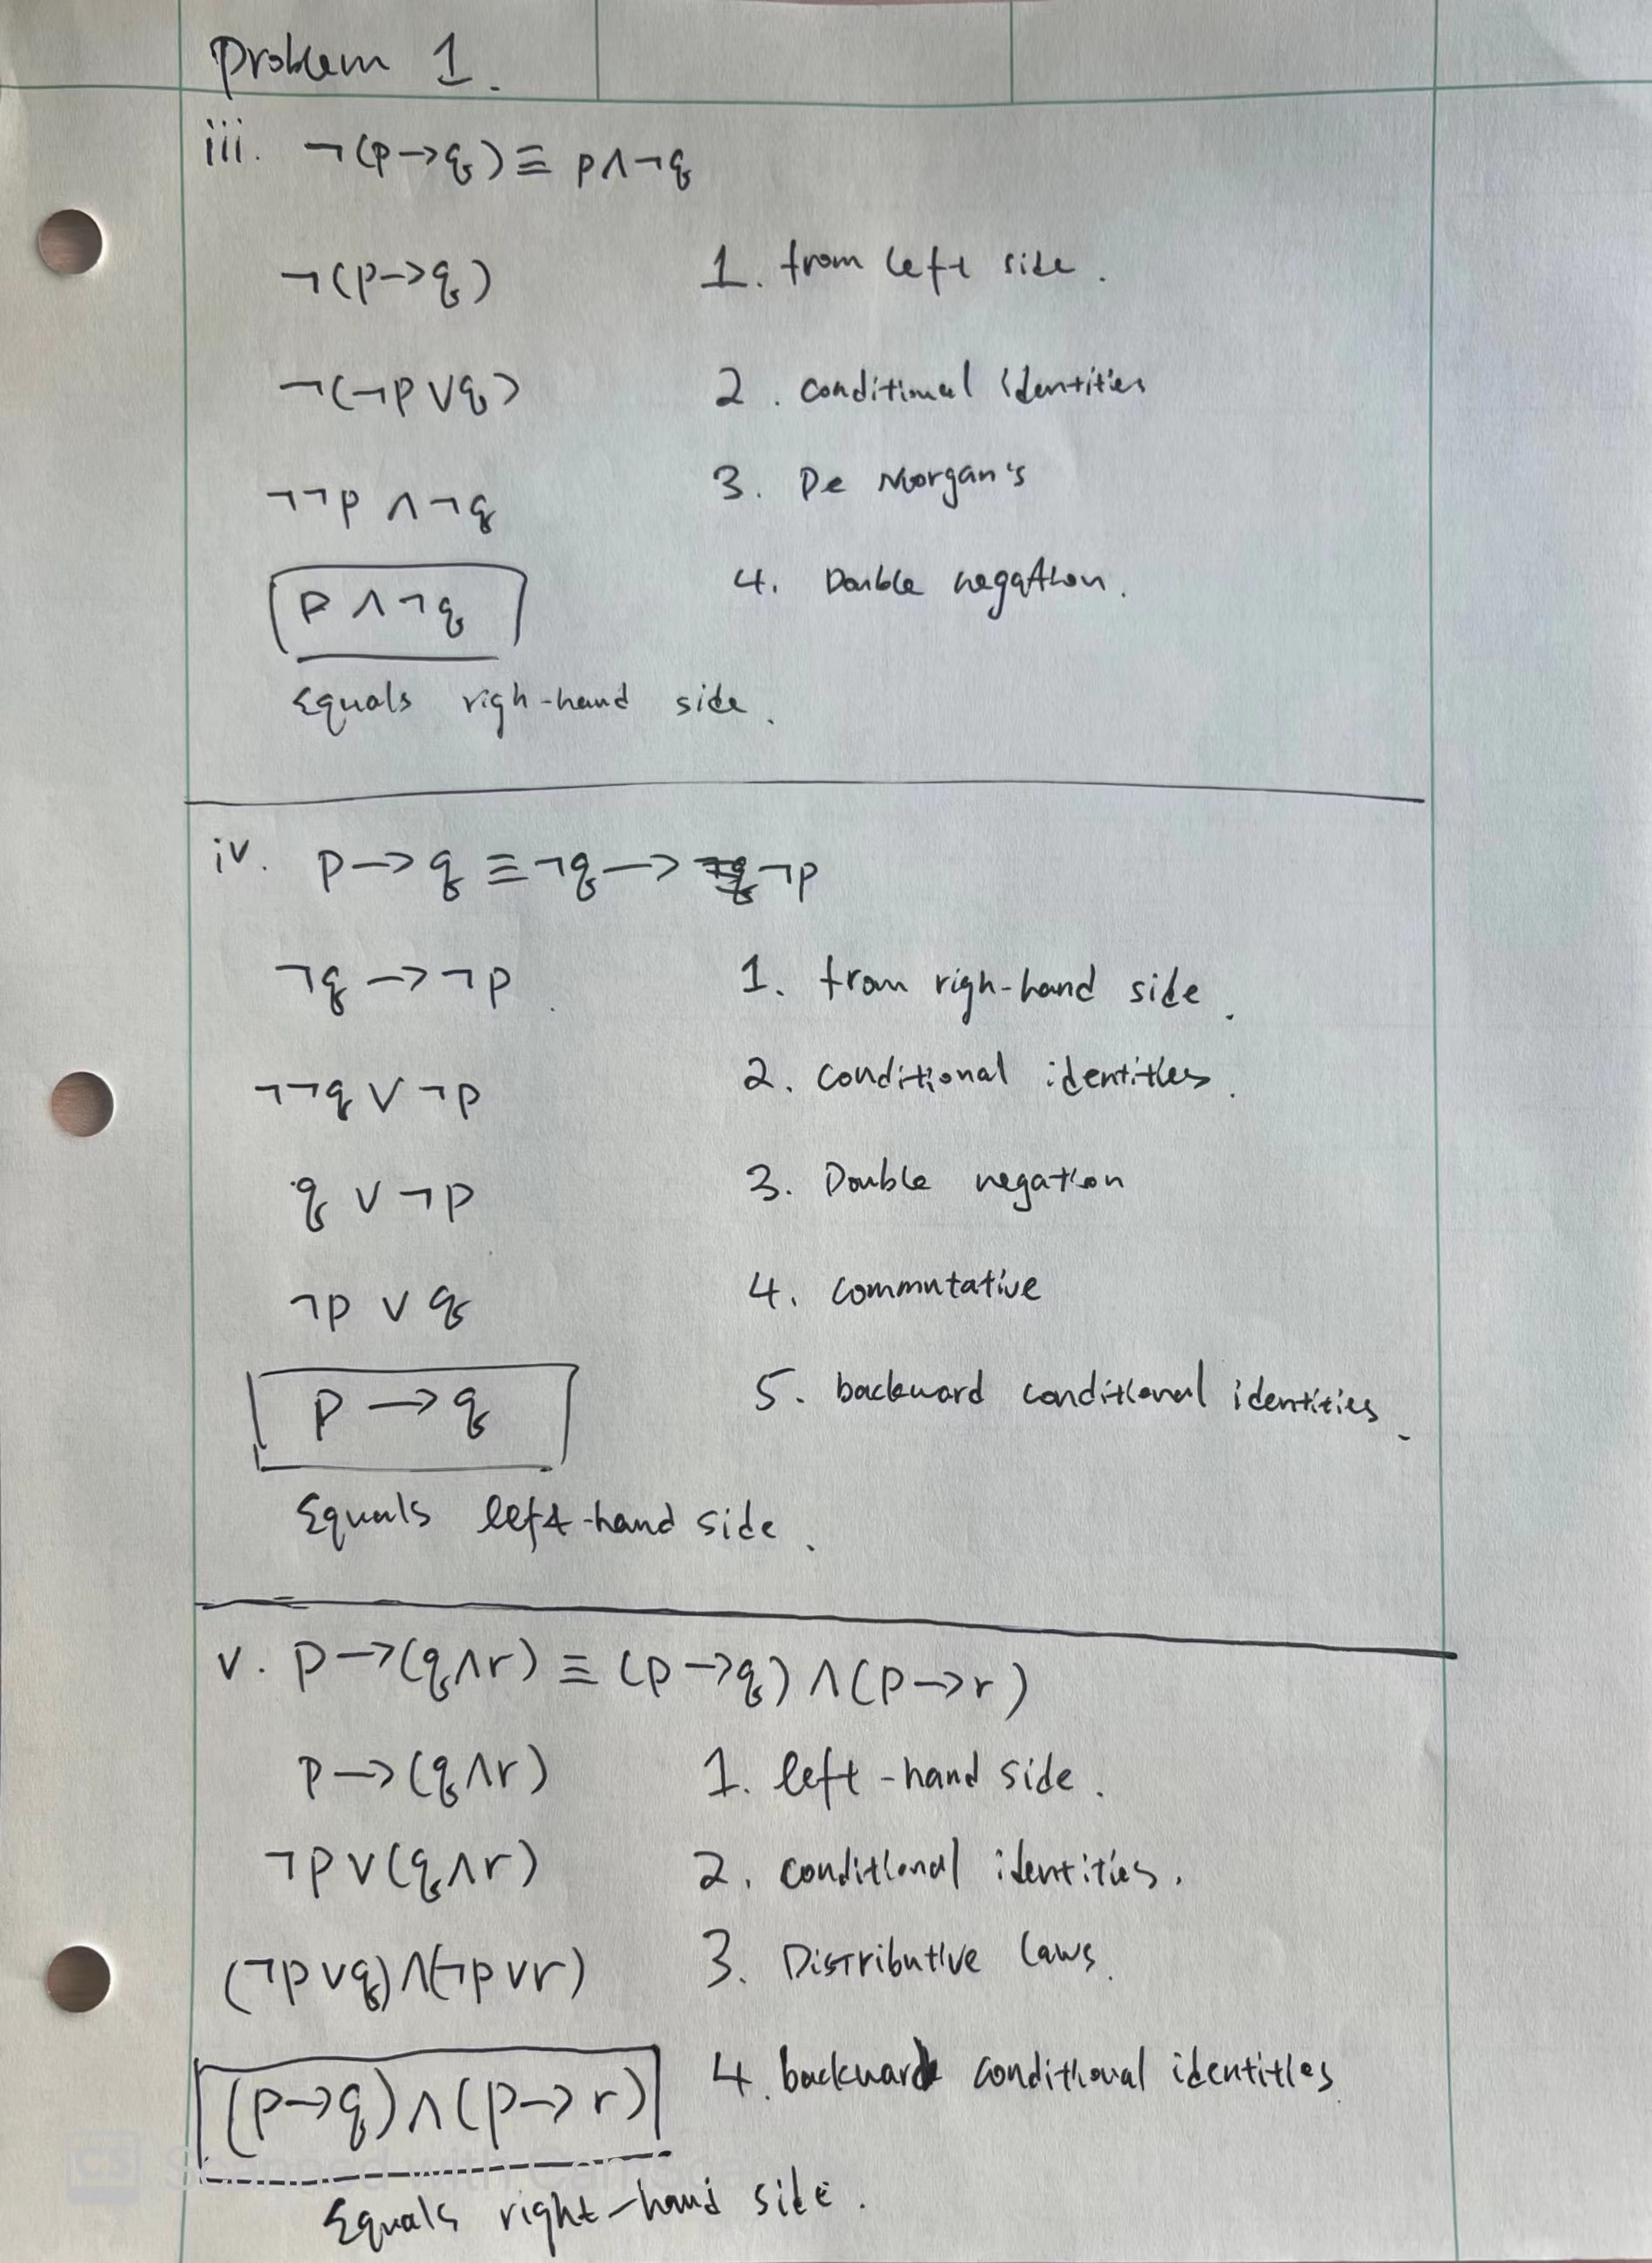 Problem 1.
iii. ¬(p→q)≡ p∧¬q
¬(p→q) 1. from left side.
¬(¬p∨q) 2. conditional identities
¬¬p ∧¬q 3. De Morgan's
p∧¬q 4. Double negation.
Equals righ-hand side.
iv. p→q≡¬q→ ¬p
¬q→¬p. 1. from righ-hand side.
¬¬q∨¬p 2. conditional identities.
q∨¬p 3. Double negation
¬p∨q 4. commutative
p→q 5. backward conditional identities.
Equals left-hand side.
v. p→(q∧r)≡(p→q)∧(p→r)
p→(q∧r) 1. left-hand side.
¬p∨(q∧r) 2. conditional identities.
(¬p∨q)∧(¬p∨r) 3. Distributive laws.
(p→q)∧(p→r) 4. backward conditional identities
CS
Equals right-hand side.